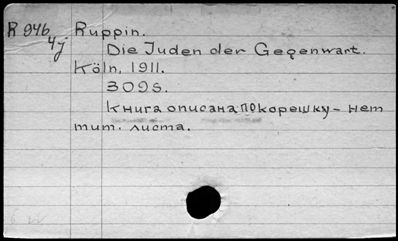 R 946
4j
Ruppin.
Die Juden der Gegenwart.
Köln, 1911.
309s.
Книга описана по корешку - нет
тит. листа.